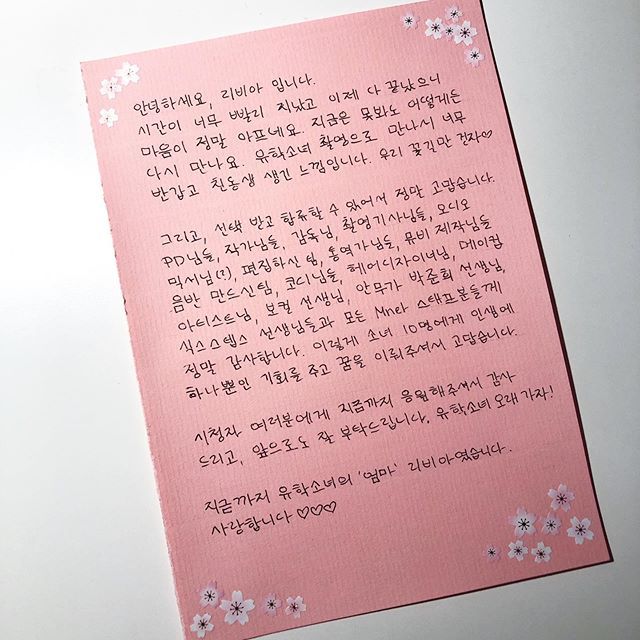 안녕하세요, 리비아 입니다.
시간이 너무 빨리 지났고 이제 다 끝났으니
마음이 정말 아프네요. 지금은 못봐도 어떻게든
다시 만나요. 유학소녀 촬영으로 만나서 너무
반갑고 친동생 생긴 느낌입니다. 우리 꽃길만 걷자♡
그리고, 선택 받고 합류할 수 있어서 정말 고맙습니다.
PD님들, 작가님들, 감독님, 촬영기사님들, 오디오
믹서님(?), 편집하신 팀, 통역가님들, 뮤비 제작님들
음반 만드신팀, 코디님들, 헤어디자이너님, 메이컵
아티스트님, 보컬 선생님, 안무가 박준희 선생님,
식스스텝스 선생님들과 모든 Mnet 스태프분들께
정말 감사합니다. 이렇게 소녀 10명에게 인생에
하나뿐인 기회를 주고 꿈을 이뤄주셔서 고맙습니다.
시청자 여러분에게 지금까지 응원해주셔서 감사
드리고, 앞으로도 잘 부탁드립니다. 유학소녀 오래 가자!
지금까지 유학소녀의 '엄마' 리비아였습니다.
사랑합니다 ♡♡♡